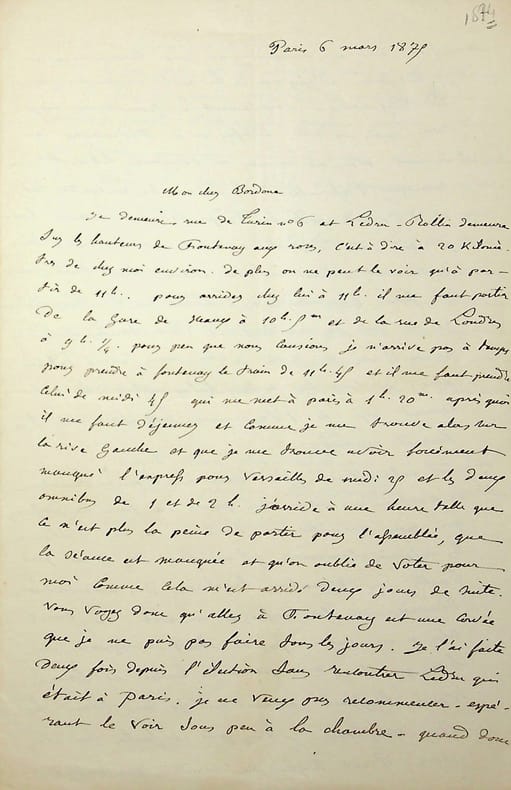 1874
Paris 6 mars 1875
Mon cher Bordone
Je demeure, rue de Turin no 6 et Ledru-Rollin demeure
sur les hauteurs de Fontenay aux roses, c'est à dire à 20 Kilomè-
tres de chez moi environ. De plus on ne peut le voir qu'à par-
tir de 11h.. pour arriver chez lui à 11h. il me faut partir
De la Gare de Sceaux à 10h. 5m et de la rue de Londres
à 9h. 1/4. pour peu que nous causions je n'arrive pas à temps
pour prendre à fontenay le train de 11h. 45 et il me faut prendre
celui de midi 45 qui me met à paris à 1h. 20m. après quoi
il me faut déjeuner et comme je me trouve alors sur
la rive Gauche et que je me trouve avoir forcément
manqué l'express pour Versailles de midi 25 et les deux
omnibus de 1 et de 2 h. j'arrive à une heure telle que
ce n'est plus la peine de partir pour l'assemblée, que
la séance est manquée et qu'on oublie de voter pour
moi comme cela m'est arrivé deux jours de suite.
Vous voyez donc qu'aller à Fontenay est une corvée
que je ne puis pas faire tous les jours. Je l'ai faite
deux fois depuis l'élection sans rencontrer Ledru qui
était à Paris. je ne veux pas recommencer - espé-
rant le voir sous peu à la chambre - quand donc